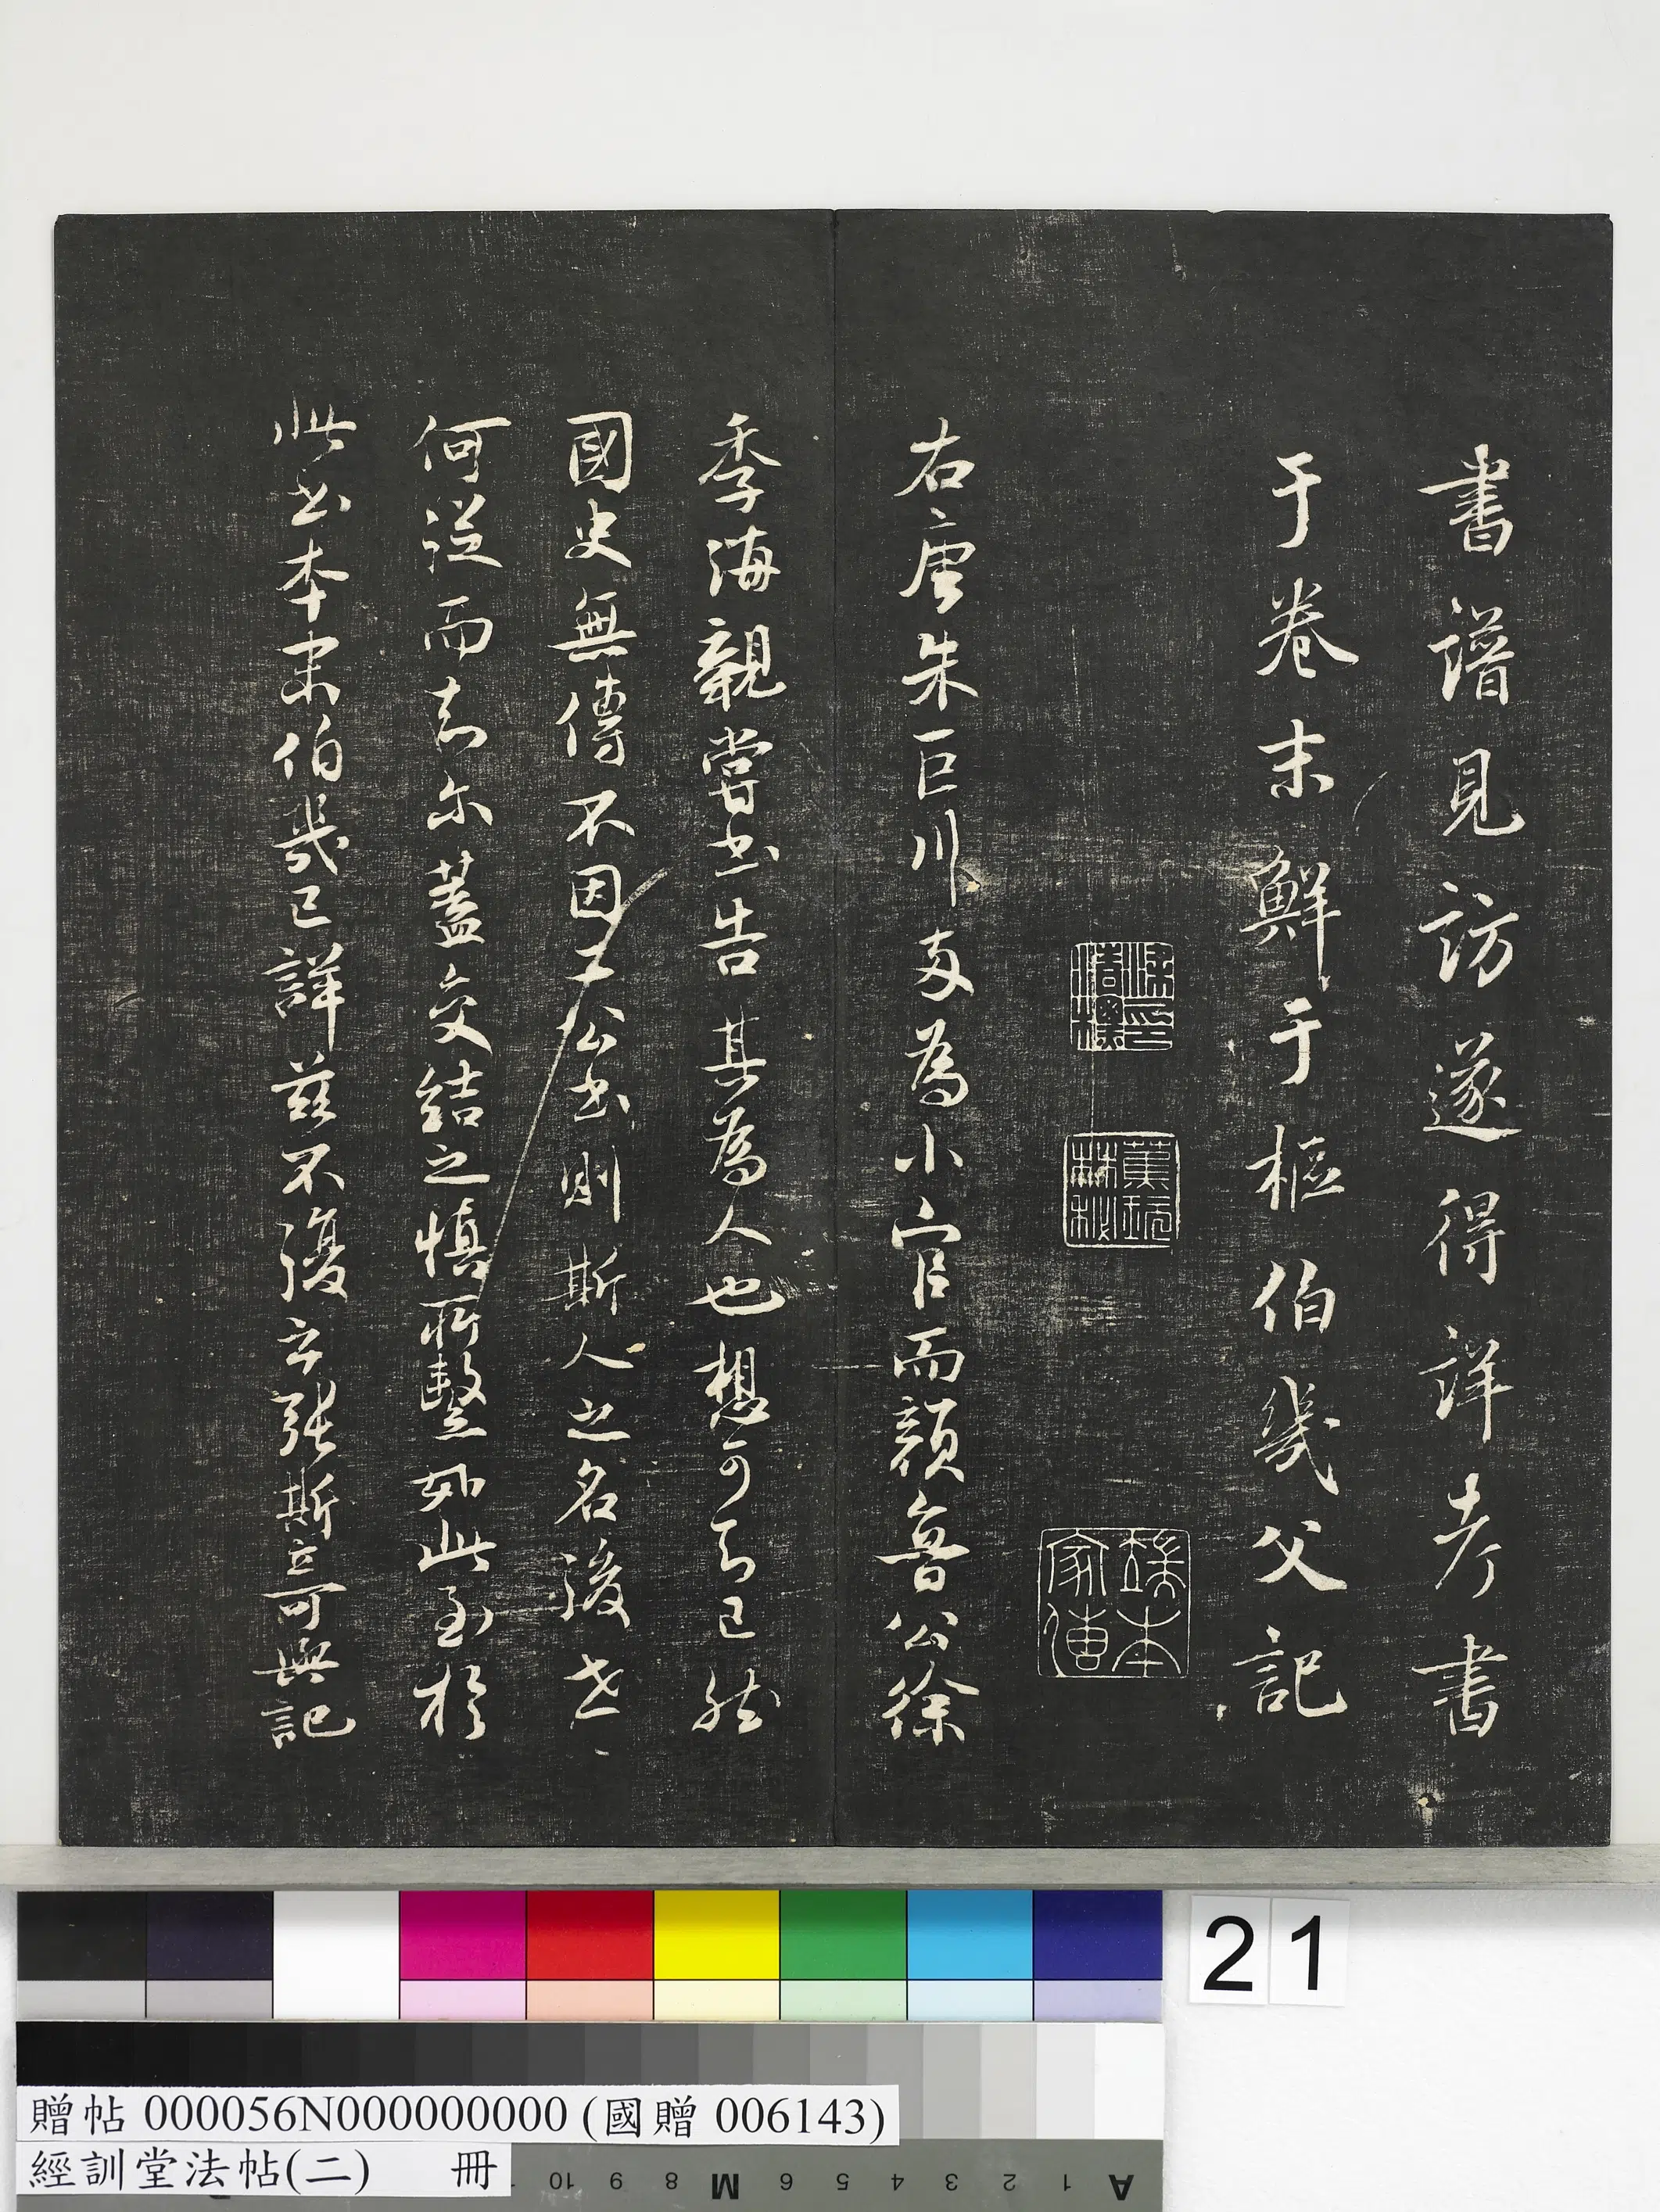 書譜見訪遂得詳考書
于卷末鮮于樞伯幾父記
右唐朱巨川兩為小官而顏魯公徐
季海親嘗書告其為人也想可知已然
國史無傳不因二公書則斯人之名後世
何從而知尔蓋交結之慎所繫如此至於
此書本末伯幾已詳茲不復云張斯立可與記
端本
家傳
21
贈帖 000056N000000000 (國贈 006143)
經訓堂法帖(二) 冊
10 9 8 M 6 5 4 3 2 1 A